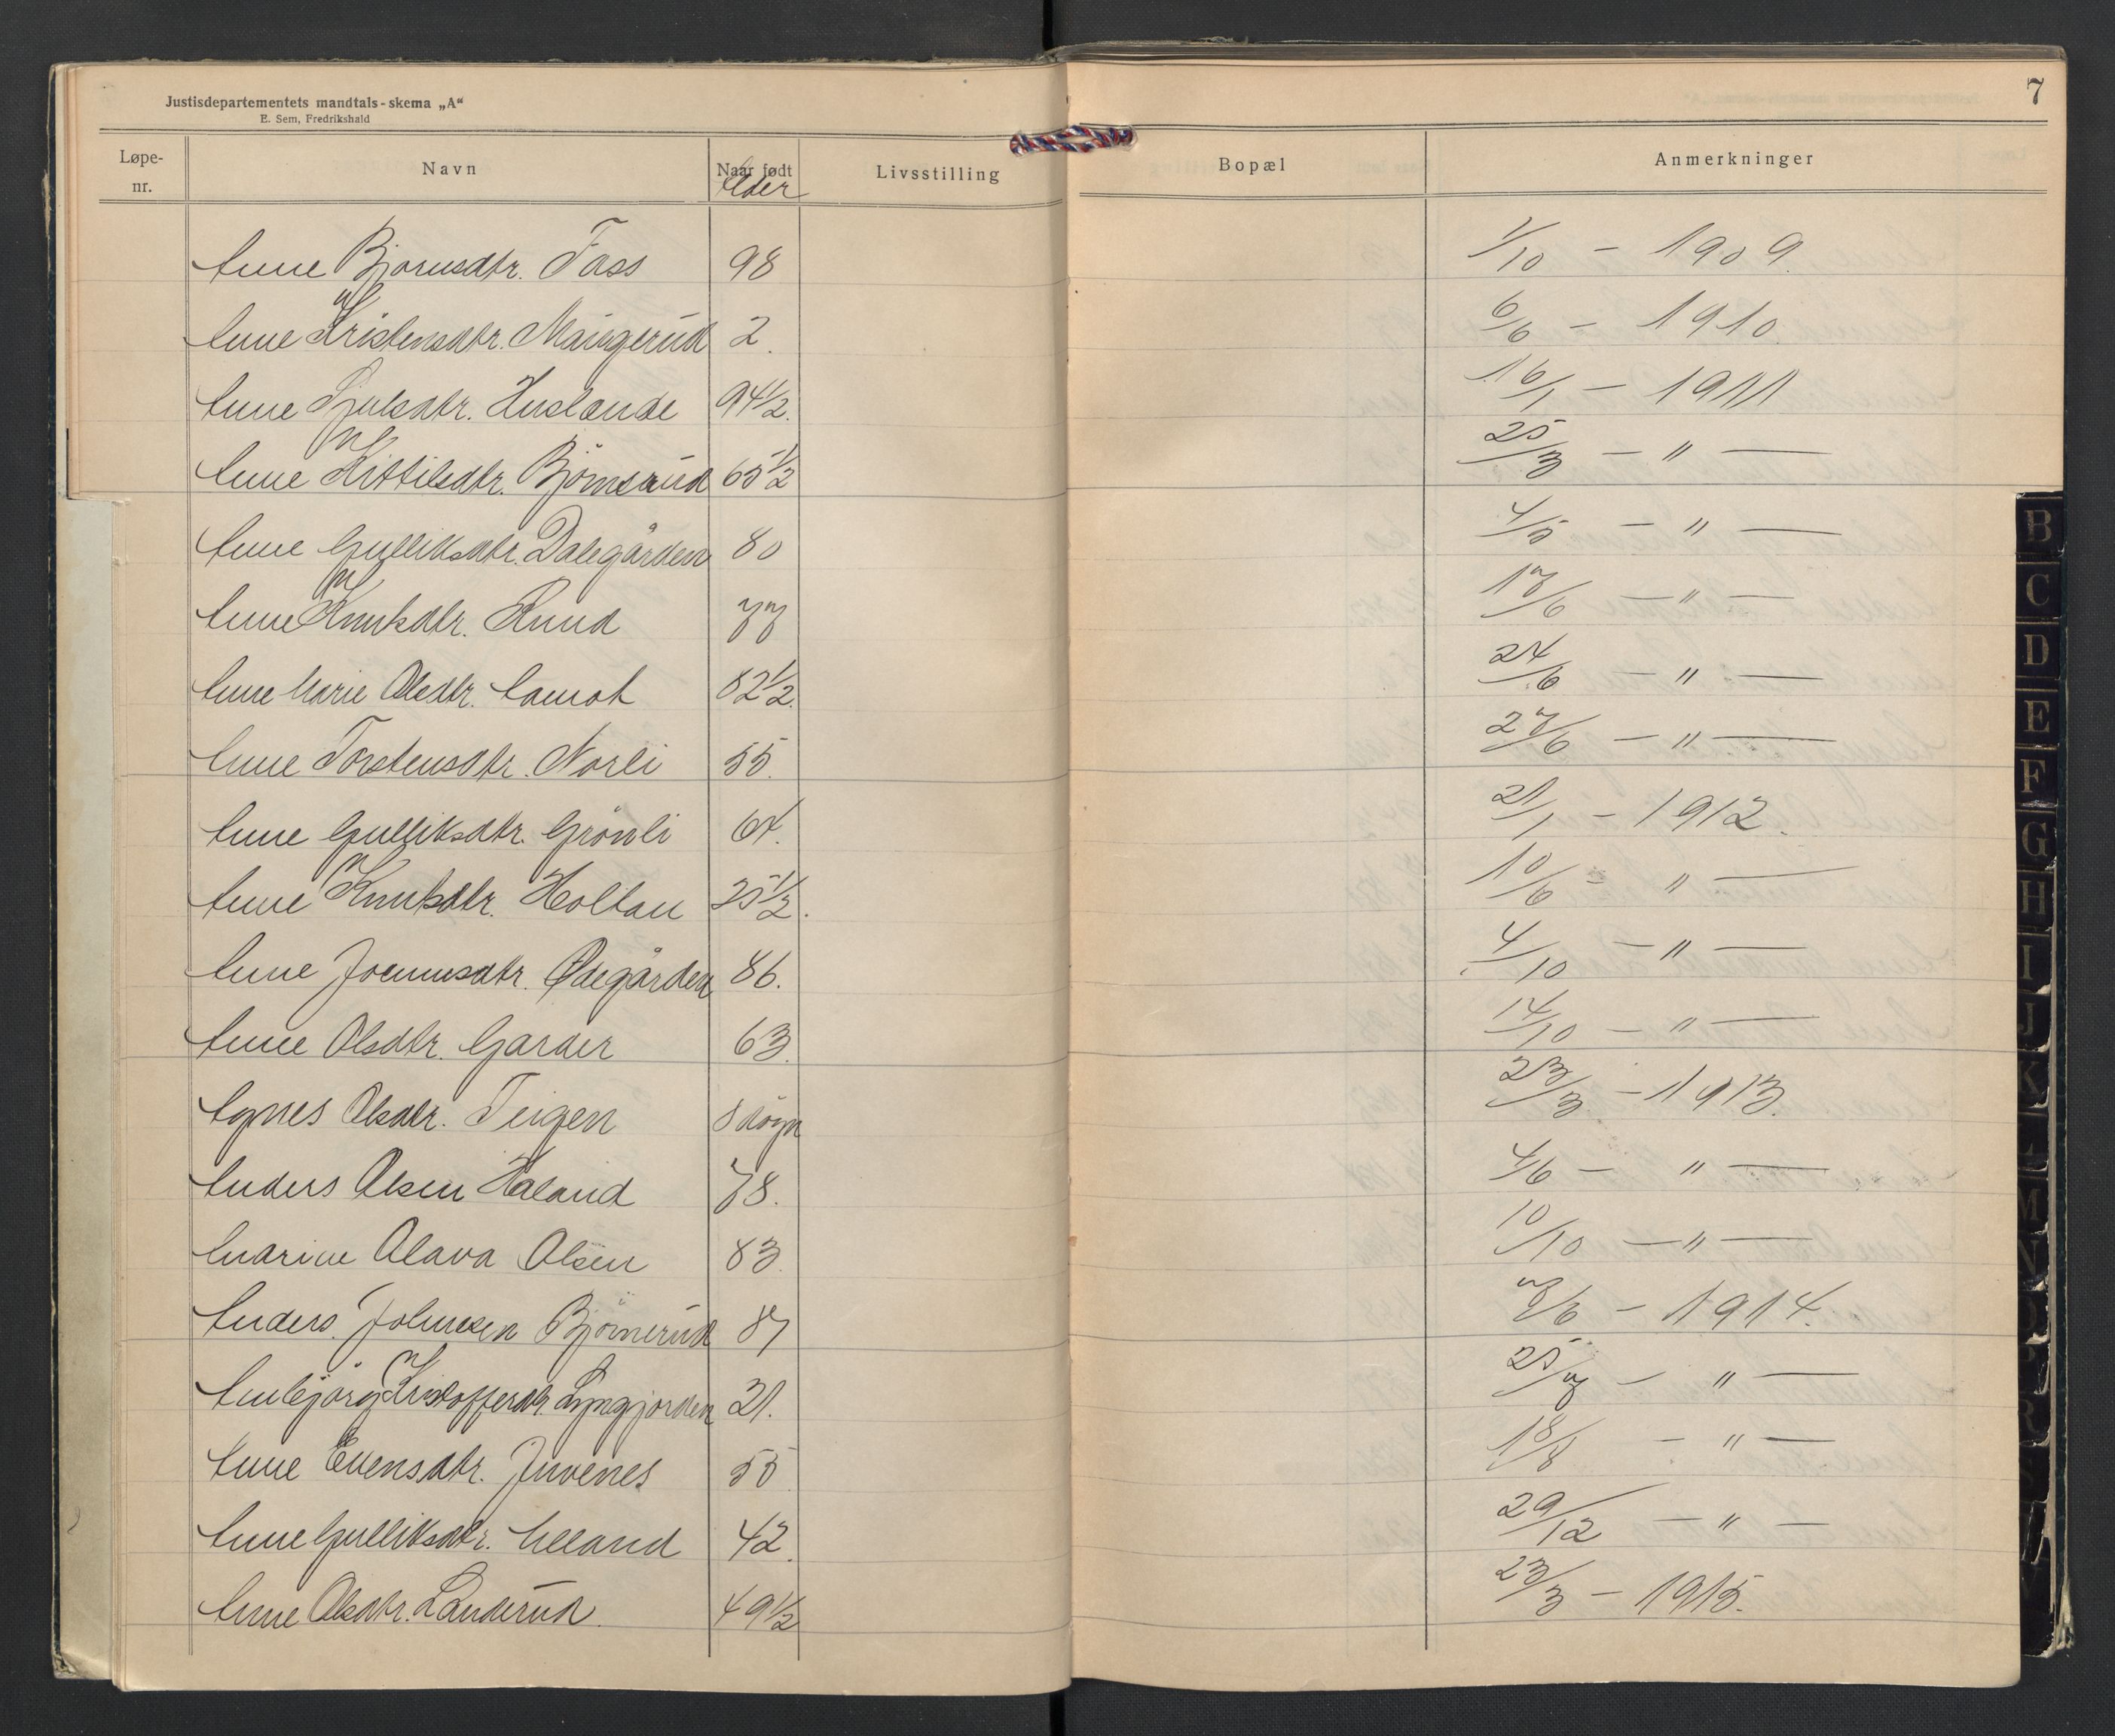 7
Justisdepartementets mandtals-skema „A“
E. Sem, Fredrikshald
Løpe-nr. Navn Naar født Alder Livsstilling Bopæl Anmerkninger
Anne Bjørnsdtr. Foss 98 1/10 - 1909.
Anne Kristensdtr. Maugerud 2. 6/6 - 1910.
Anne Kjulsdtr. Huslænde 94 1/2. 16/1 - 1911
Anne Kittilsdtr. Björnsrud 65 1/2 25/3 - " -
Anne Gulliksdtr. Dalegården 80 4/5 - " -
Anne Knutsdtr. Ruud 77 17/6 - " -
Anne Marie Olsdtr. Aamot 82 1/2. 24/6 - " -
Anne Torstensdtr. Norli 55. 27/6 - " -
Anne Gulliksdtr. Grönli 64. 21/1 - 1912.
Anne Knutsdtr. Holtan 25 1/2. 10/6 - " -
Anne Joennsdtr. Ødegården 86. 4/10 - " -
Anne Olsdtr. Garder 63. 14/10 - " -
Agnes Olsdtr. Teigen 8 døgn 23/3 - 1913.
Anders Olsen Haland 78. 4/6 - " -
Anarine Olava Olsen 83. 10/10 - " -
Anders Johnsen Björnerud 87 7/6 - 1914.
Anbjørg Kristofferdtr. Lyngjorden 31. 25/7 - " -
Anne Evensdtr. Juvenes 55 18/8 - " -
Anne Gulliksdtr. Ulland 42. 29/12 - " -
Anne Olsdtr. Landerud. 49 1/2 23/3 - 1915.
B
C
D
E
F
G
H
I
J
K
L
M
N
O
P
R